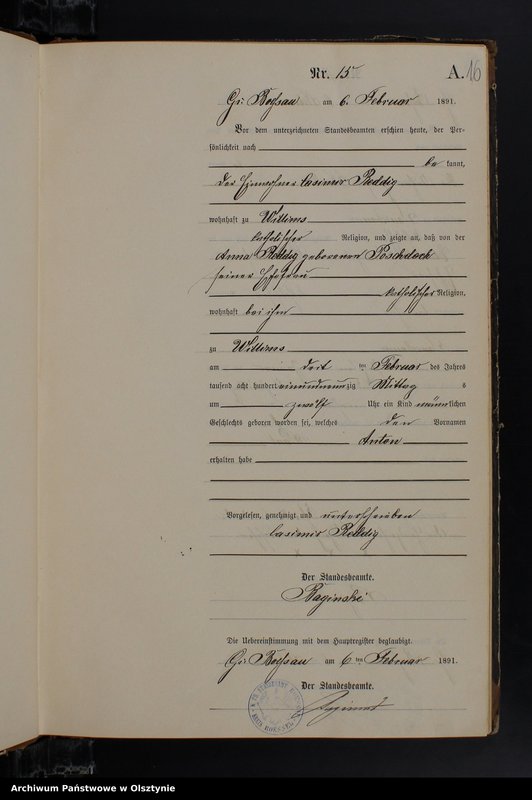 Nr. 15
A. 16
Gr. Bößau am 6. Februar 1891.
Vor dem unterzeichneten Standesbeamten erschien heute, der Per-
sönlichkeit nach
be kannt,
der Einwohner Casimir Reddig
wohnhaft zu Willims
katholischer Religion, und zeigte an, daß von der
Anna Reddig geborenen Poschdack
seiner Ehefrau
katholischer Religion,
wohnhaft bei ihm
zu Willims
am drei ten Februar des Jahres
tausend acht hundert einundneunzig Mittag s
um zwölf Uhr ein Kind männlichen
Geschlechts geboren worden sei, welches den Vornamen
Anton
erhalten habe
Vorgelesen, genehmigt und unterschrieben
Casimir Reddig
Der Standesbeamte.
Raginski
Die Uebereinstimmung mit dem Hauptregister beglaubigt.
Gr. Bößau am 6 ten Februar 1891.
Der Standesbeamte.
Raginski
Archiwum Państwowe w Olsztynie